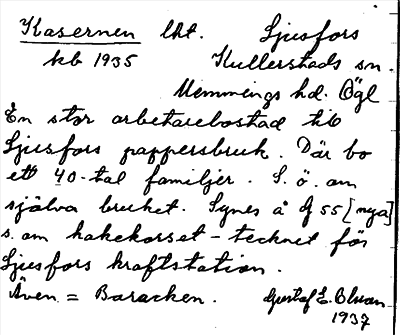 Kasernen lht. Ljusfors
kb 1935 Kullerstads sn.
Memmings hd. Ögl
En stor arbetarebostad till
Ljusfors pappersbruk. Där bo
ett 40-tal familjer. S. ö. om
själva bruket. Synes å gf 55 [nya]
s. om hakekorset - tecknet för
Ljusfors kraftstation.
Även = Baracken. Gustaf E. Olson
1937